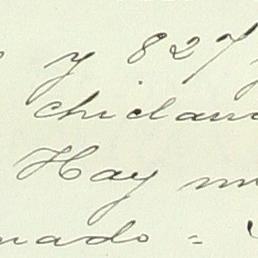 y 827
chiclan
Hay m
nado =